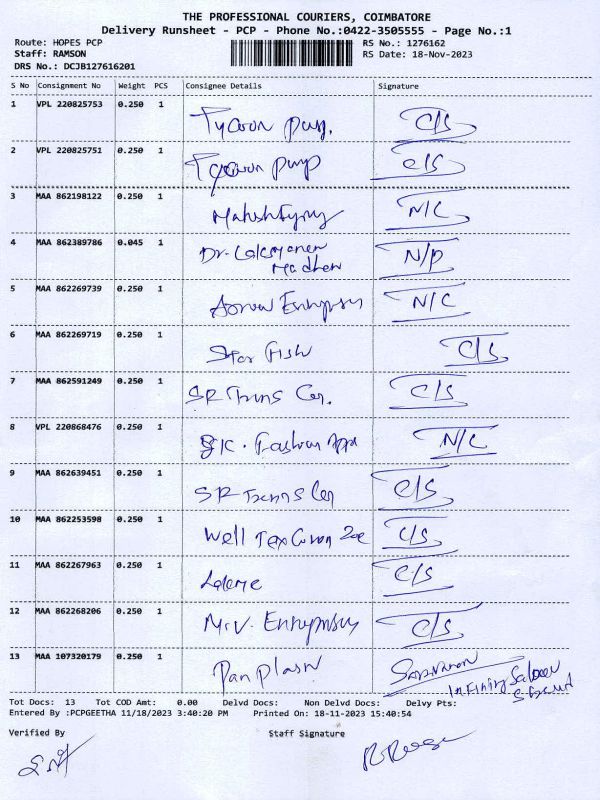 THE PROFESSIONAL COURIERS, COIMBATORE
Delivery Runsheet - PCP - Phone No.:0422-3505555 - Page No.:1
Route: HOPES PCP RS No.: 1276162
Staff: RAMSON RS Date: 18-Nov-2023
DRS No.: DCJB127616201
S No Consignment No Weight PCS Consignee Details Signature
1 VPL 220825753 0.250 1 Tycoon Pump. C/S
2 VPL 220825751 0.250 1 Tycoon Pump C/S
3 MAA 862198122 0.250 1 N/C
4 MAA 862389786 0.045 1 Dr. N/P
Madhan
5 MAA 862269739 0.250 1 N/C
6 MAA 862269719 0.250 1 Star Fish C/S
7 MAA 862591249 0.250 1 SR Trans C/S
8 VPL 220868476 0.250 1 S.K. Fashion N/C
9 MAA 862639451 0.250 1 SR Trans C/S
10 MAA 862253598 0.250 1 Well Tex C/S
11 MAA 862267963 0.250 1 C/S
12 MAA 862268206 0.250 1 M.V. C/S
13 MAA 107320179 0.250 1 Saravanan
Tot Docs: 13 Tot COD Amt: 0.00 Delvd Docs: Non Delvd Docs: Delvy Pts:
Entered By :PCPGEETHA 11/18/2023 3:40:20 PM Printed On: 18-11-2023 15:40:54
Verified By Staff Signature